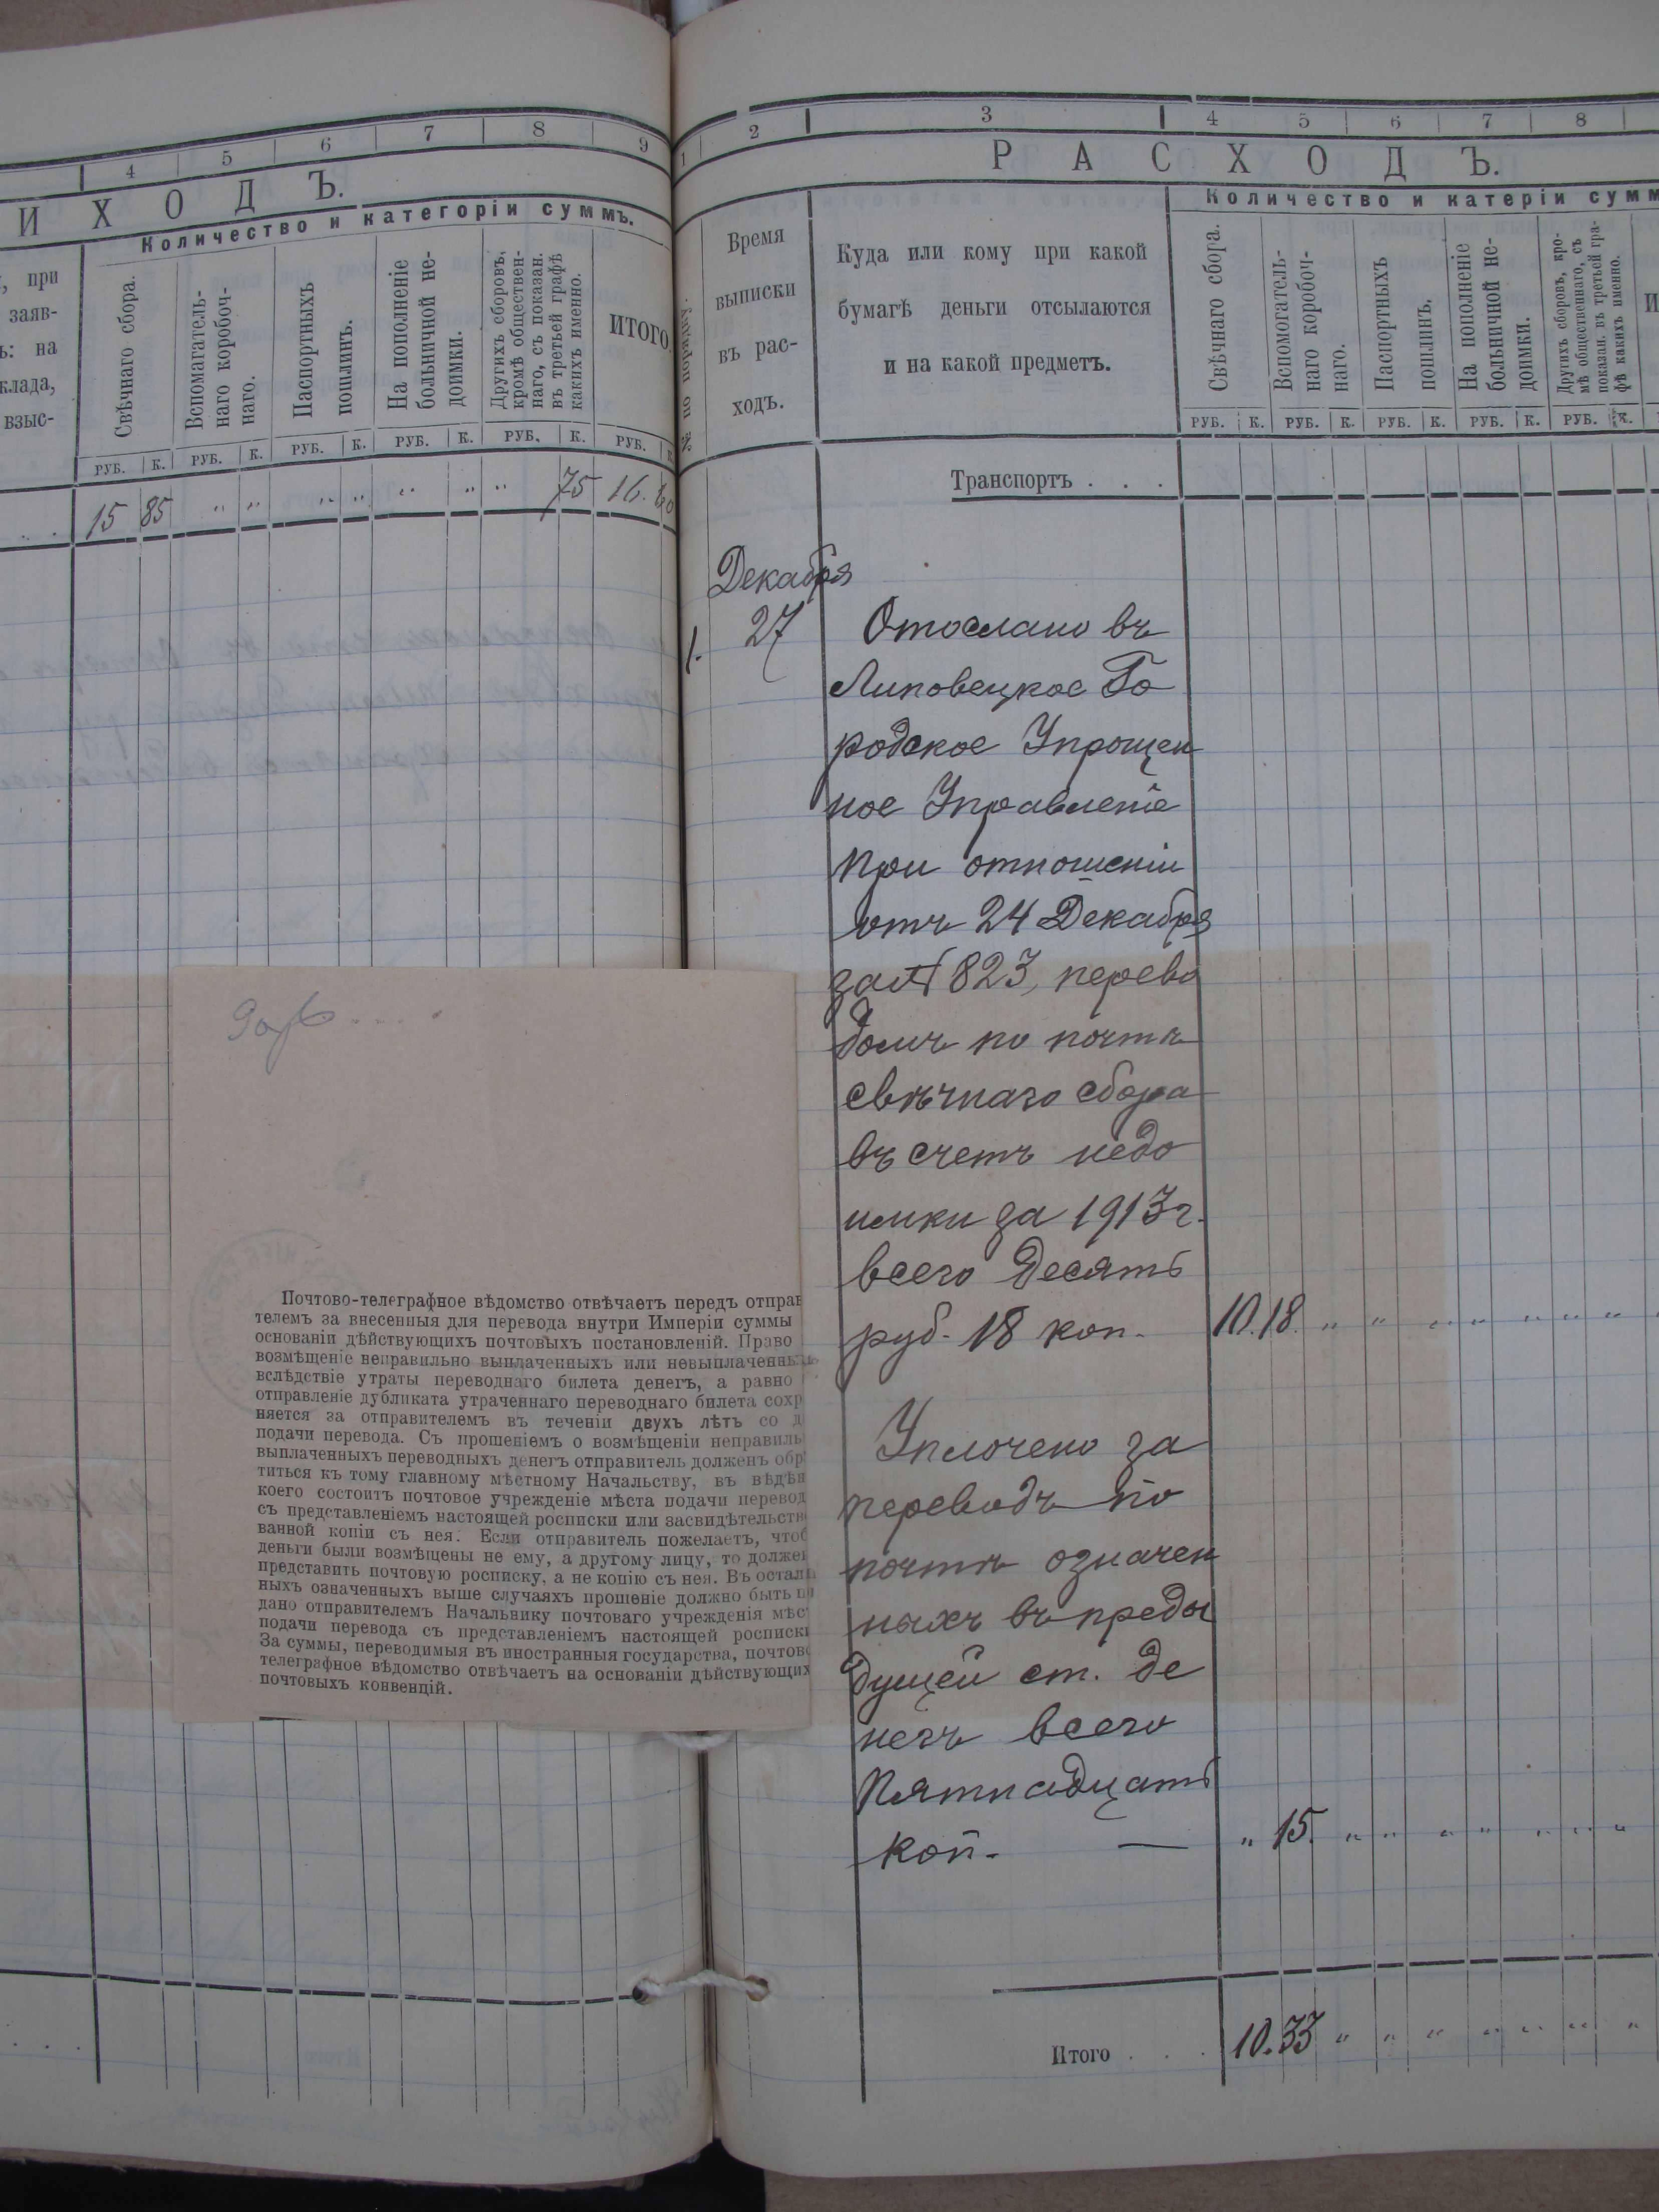 4 5 6 7 8 9
И Х О Д Ъ.
Количество и категоріи суммъ.
, при
заяв-
ъ: на
клада,
взыс-
Свѣчнаго сбора.
Вспомагатель-
наго коробоч-
наго.
Паспортныхъ
пошлинъ.
На пополненіе
больничной не-
доимки.
Другихъ сборовъ,
кромѣ обществен-
наго, съ показан.
въ третьей графѣ
какихъ именно.
ИТОГО
РУБ. К. РУБ. К. РУБ. К. РУБ. К. РУБ. К. РУБ. К
. . 15 85 „ „ „ „ „ „ „ 75 16. 60
Почтово-телеграфное вѣдомство отвѣчаетъ передъ отправ
телемъ за внесенныя для перевода внутри Имперіи суммы
основаніи дѣйствующихъ почтовыхъ постановленій. Право
возмѣщеніе неправильно выплаченныхъ или невыплаченны
вслѣдствіе утраты переводнаго билета денегъ, а равно
отправленіе дубликата утраченнаго переводнаго билета сохр
няется за отправителемъ въ теченіи двухъ лѣтъ со д
подачи перевода. Съ прошеніемъ о возмѣщеніи неправиль
выплаченныхъ переводныхъ денегъ отправитель долженъ обр
титься къ тому главному мѣстному Начальству, въ вѣдѣн
коего состоитъ почтовое учрежденіе мѣста подачи перевод
съ представленіемъ настоящей росписки или засвидѣтельств
ванной копіи съ нея. Если отправитель пожелаетъ, чтоб
деньги были возмѣщены не ему, а другому лицу, то должен
представить почтовую росписку, а не копію съ нея. Въ остал
ныхъ означенныхъ выше случаяхъ прошеніе должно быть п
дано отправителемъ Начальнику почтоваго учрежденія мѣс
подачи перевода съ представленіемъ настоящей росписки
За суммы, переводимыя въ иностранныя государства, почтово
телеграфное вѣдомство отвѣчаетъ на основаніи дѣйствующих
почтовыхъ конвенцій.
1 2 3 4 5 6 7 8
Р А С Х О Д Ъ.
Количество и катеріи сумм
№ по порядку.
Время
выписки
въ рас-
ходъ.
Куда или кому при какой
бумагѣ деньги отсылаются
и на какой предметъ.
Свѣчнаго сбора.
Вспомогатель-
наго коробоч-
наго.
Паспортныхъ
пошлинъ.
На пополненіе
больничной не-
доимки.
Другихъ сборовъ, кро-
мѣ общественнаго, съ
показан. въ третьей гра-
фѣ какихъ именно.
И
РУБ. К. РУБ. К. РУБ. К. РУБ. К. РУБ. К.
Транспортъ . . .
Декабря
1. 27 Отослано въ
Липовецкое Го
родское Упрощен
ное Управленіе
при отношеніи
отъ 24 Декабря
за № 823, перево
домъ по почтѣ
свѣчнаго сбора
въ счетъ недо
имки за 1913 г.
всего Десять
руб. 18 коп. 10. 18. „ „ „ „ „ „ „
Уплочено за
переводъ по
почтѣ означен
ныхъ въ преды
дущей ст. де
негъ всего
Пятнадцать
коп. — „ 15. „ „ „ „ „ „ „
Итого . . . 10. 33 „ „ „ „ „ „ „